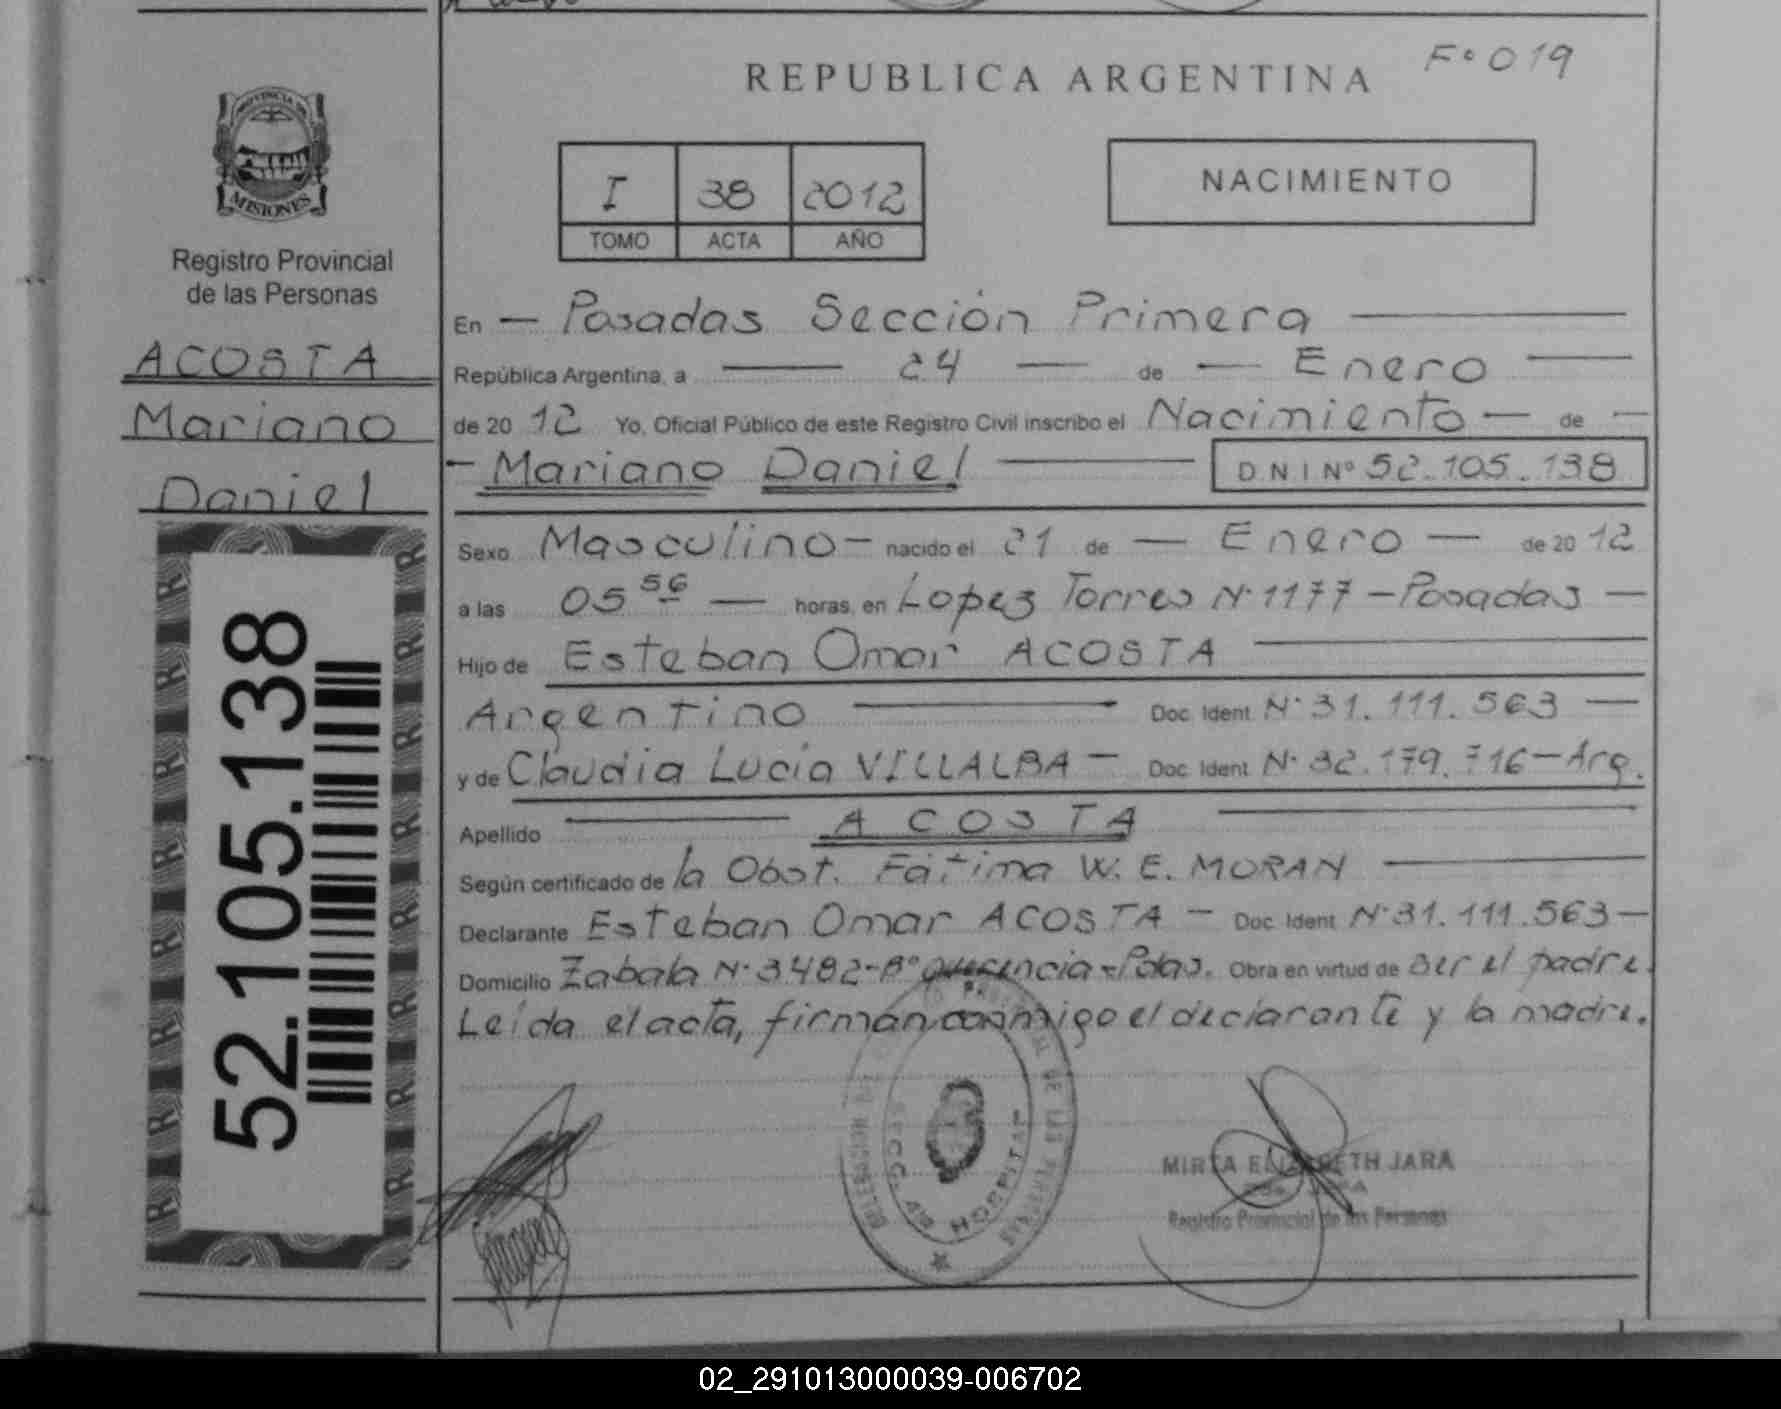 F° 019
REPUBLICA ARGENTINA
PROVINCIA DE
MISIONES
Registro Provincial
de las Personas
ACOSTA
Mariano
Daniel
52.105.138
I 38 2012
TOMO ACTA AÑO
NACIMIENTO
En — Posadas Sección Primera —
República Argentina, a — 24 — de — Enero —
de 20 12 Yo, Oficial Público de este Registro Civil inscribo el Nacimiento — de —
— Mariano Daniel — D.N.I Nº 52.105.138
Sexo Masculino — nacido el 21 de — Enero — de 20 12
a las 05 56 — horas, en Lopez Torres N° 1177 — Posadas —
Hijo de Esteban Omar ACOSTA —
Argentino — Doc. Ident. N° 31.111.563 —
y de Claudia Lucia VILLALBA — Doc. Ident. N° 32.179.716 — Arg.
Apellido — ACOSTA —
Según certificado de la Obst. Fátima W. E. MORAN —
Declarante Esteban Omar ACOSTA — Doc. Ident. N° 31.111.563 —
Domicilio Zabala N° 3482 - B° Querencia - Pdas. Obra en virtud de ser el padre.
Leída el acta, firman conmigo el declarante y la madre.
SECC. HOSPITAL
DE LAS PERSONAS
MIRTA ELIZABETH JARA
Registro Provincial de las Personas
02_291013000039-006702